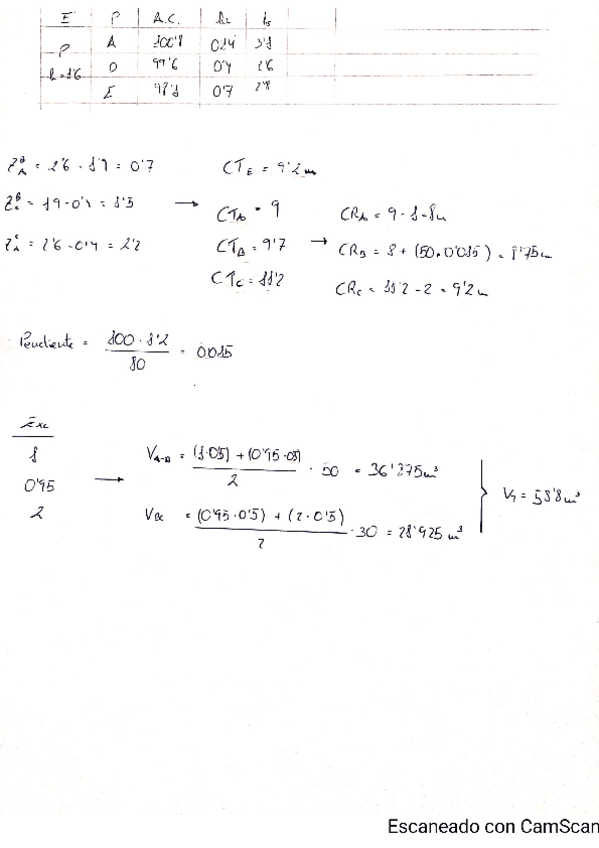 E P A.C. h₂ ts
P A 100'1 0'14 3'1
h=1'6 D 99'6 0'4 2'6
E 97'1 0'7 2'8
= 2'6 - 1'9 = 0'7 CT_E = 9'2 m
= 1'9 - 0'4 = 1'5 → CT_A = 9 CR_A = 9 - 1 = 8m
= 2'6 - 0'4 = 2'2 CT_B = 9'7 → CR_B = 8 + (50 · 0'015) = 8'75m
CT_C = 11'2 CR_C = 11'2 - 2 = 9'2 m
Pendiente = 100 · 1'2 / 80 = 0'015
Exc
1 → V_A-B = (1·0'5) + (0'95·0'5) / 2 · 50 = 36'375m³
0'95
2 V_BC = (0'95·0'5) + (2·0'5) / 2 · 30 = 28'925 m³ V_T = 58'8m³
Escaneado con CamScan